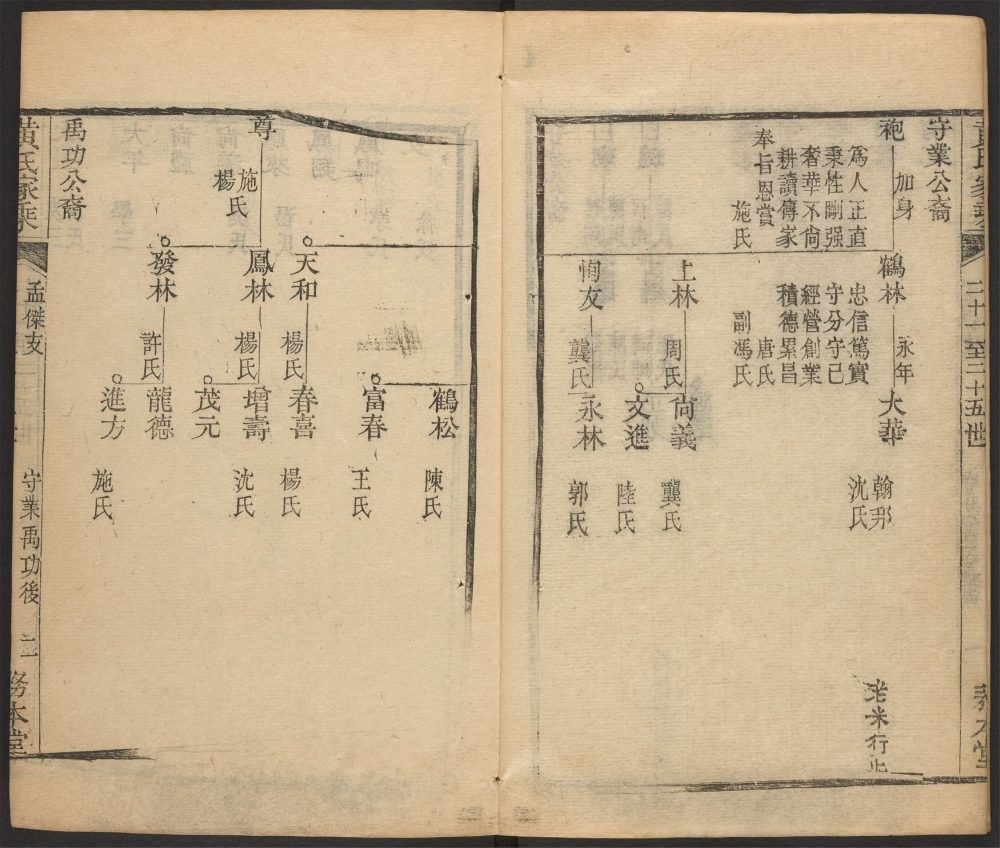 守業公裔
袍
加身
為人正直
秉性剛强
奢華不尚
耕讀傳家
奉旨恩賞
施氏
鶴林
永年
忠信篤實
守分守己
經營創業
積德累昌
唐氏
副馮氏
大華
翰邦
沈氏
老米行止
上林
周氏
尚義
龔氏
文進
陸氏
恂友
龔氏
永林
郭氏
二十一至二十五世
鶴松
陳氏
富春
王氏
天和
楊氏
春喜
楊氏
尊
施氏
楊氏
鳳林
楊氏
增壽
沈氏
茂元
發林
許氏
龍德
進方
施氏
禹功公裔
黃氏家乘
孟傑支
守業禹功後
二
務本堂